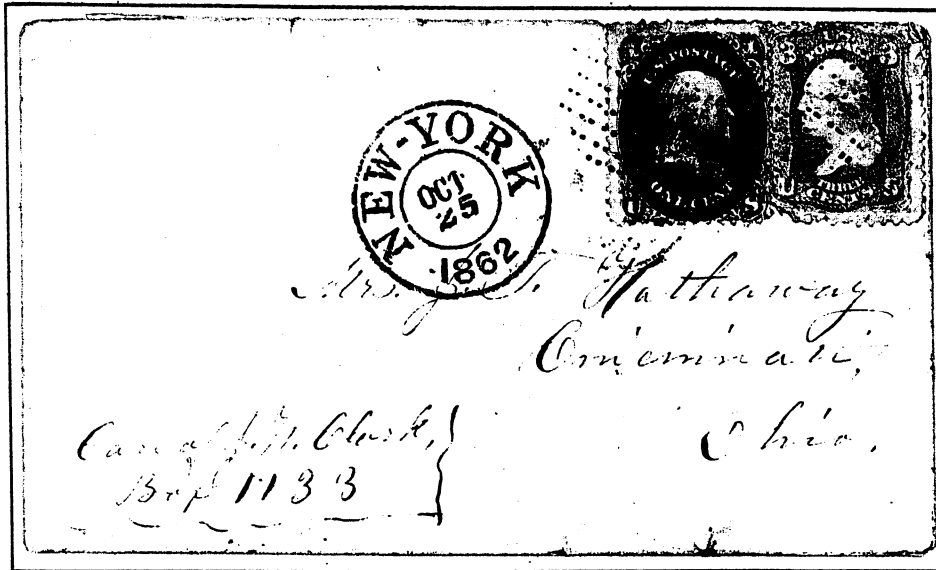 U.S. POSTAGE
ONE CENT
U S
3 3
U S
THREE CENTS
NEW-YORK
OCT
25
1862
Mrs. J. T. Hathaway
Cincinnati,
Ohio.
Care of Clark,
Box 1133